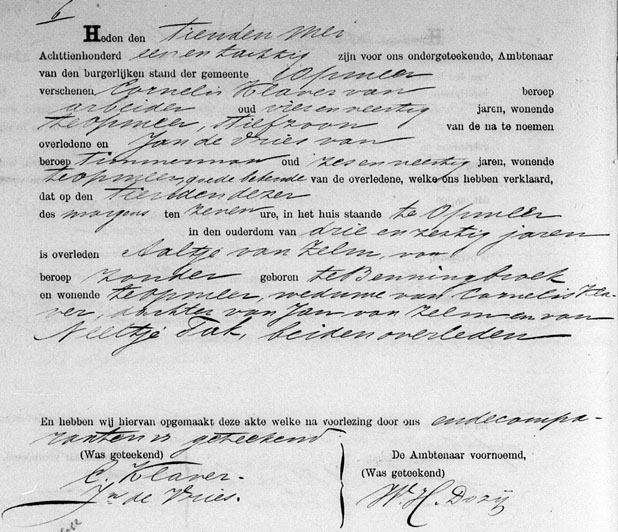 6
Heden den tienden Mei
Achttienhonderd een en tachtig zijn voor ons ondergeteekende, Ambtenaar
van den burgerlijken stand der gemeente Opmeer
verschenen Cornelis Klaver van beroep
arbeider oud vier en veertig jaren, wonende
te Opmeer, stiefzoon van de na te noemen
overledene en Jan de Vries van
beroep timmerman oud zes en veertig jaren, wonende
te Opmeer, goede bekende van de overledene, welke ons hebben verklaard,
dat op den tienden dezer
des morgens ten zeven ure, in het huis staande te Opmeer
in den ouderdom van drie en zestig jaren
is overleden Aaltje van Zelm, van
beroep zonder geboren te Benningbroek
en wonende te Opmeer, weduwe van Cornelis Kla-
ver, dochter van Jan van Zelm en van
Neeltje Tak, beiden overleden
En hebben wij hiervan opgemaakt deze akte welke na voorlezing door ons en de compa-
ranten is geteekend
(Was geteekend)
De Ambtenaar voornoemd,
C. Klaver.
(Was geteekend)
Jn de Vries.
W. H. Dozij